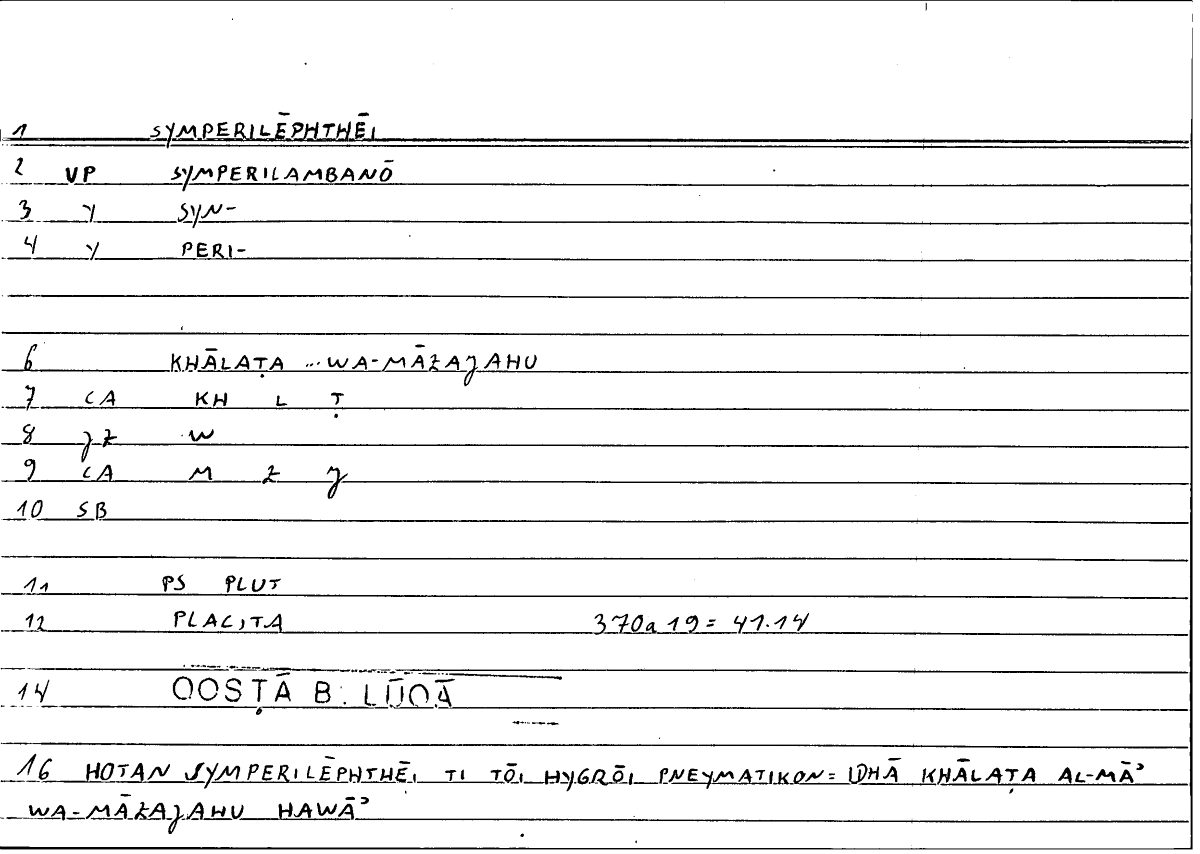 1 SYMPERILĒPHTHĒI
2 VP SYMPERILAMBANŌ
3 Y SYN-
4 Y PERI-
6 KHĀLAṬA ...WA-MĀZAJAHU
7 CA KH L Ṭ
8 JZ W
9 CA M Z J
10 SB
11 PS PLUT
12 PLACITA 370a19 = 41.14
14 QOSṬĀ B. LŪQĀ
16 HOTAN SYMPERILĒPHTHĒI TI TŌI HYGRŌI PNEYMATIKON = IDHĀ KHĀLAṬA AL-MĀʾ
WA-MĀZAJAHU HAWĀʾ